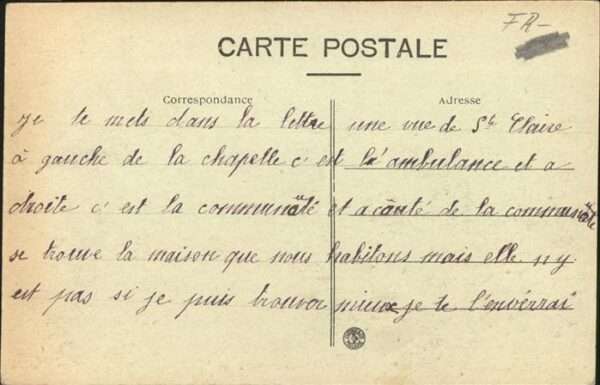 FR-
CARTE POSTALE
Correspondance
Adresse
je te mets dans la lettre une vue de Ste Claire
à gauche de la chapelle c'est l'ambulance et a
droite c'est la communauté et a couté de la communauté
se trouve la maison que nous habitons mais elle n y
est pas si je puis trouver mieux je te l'enverrai